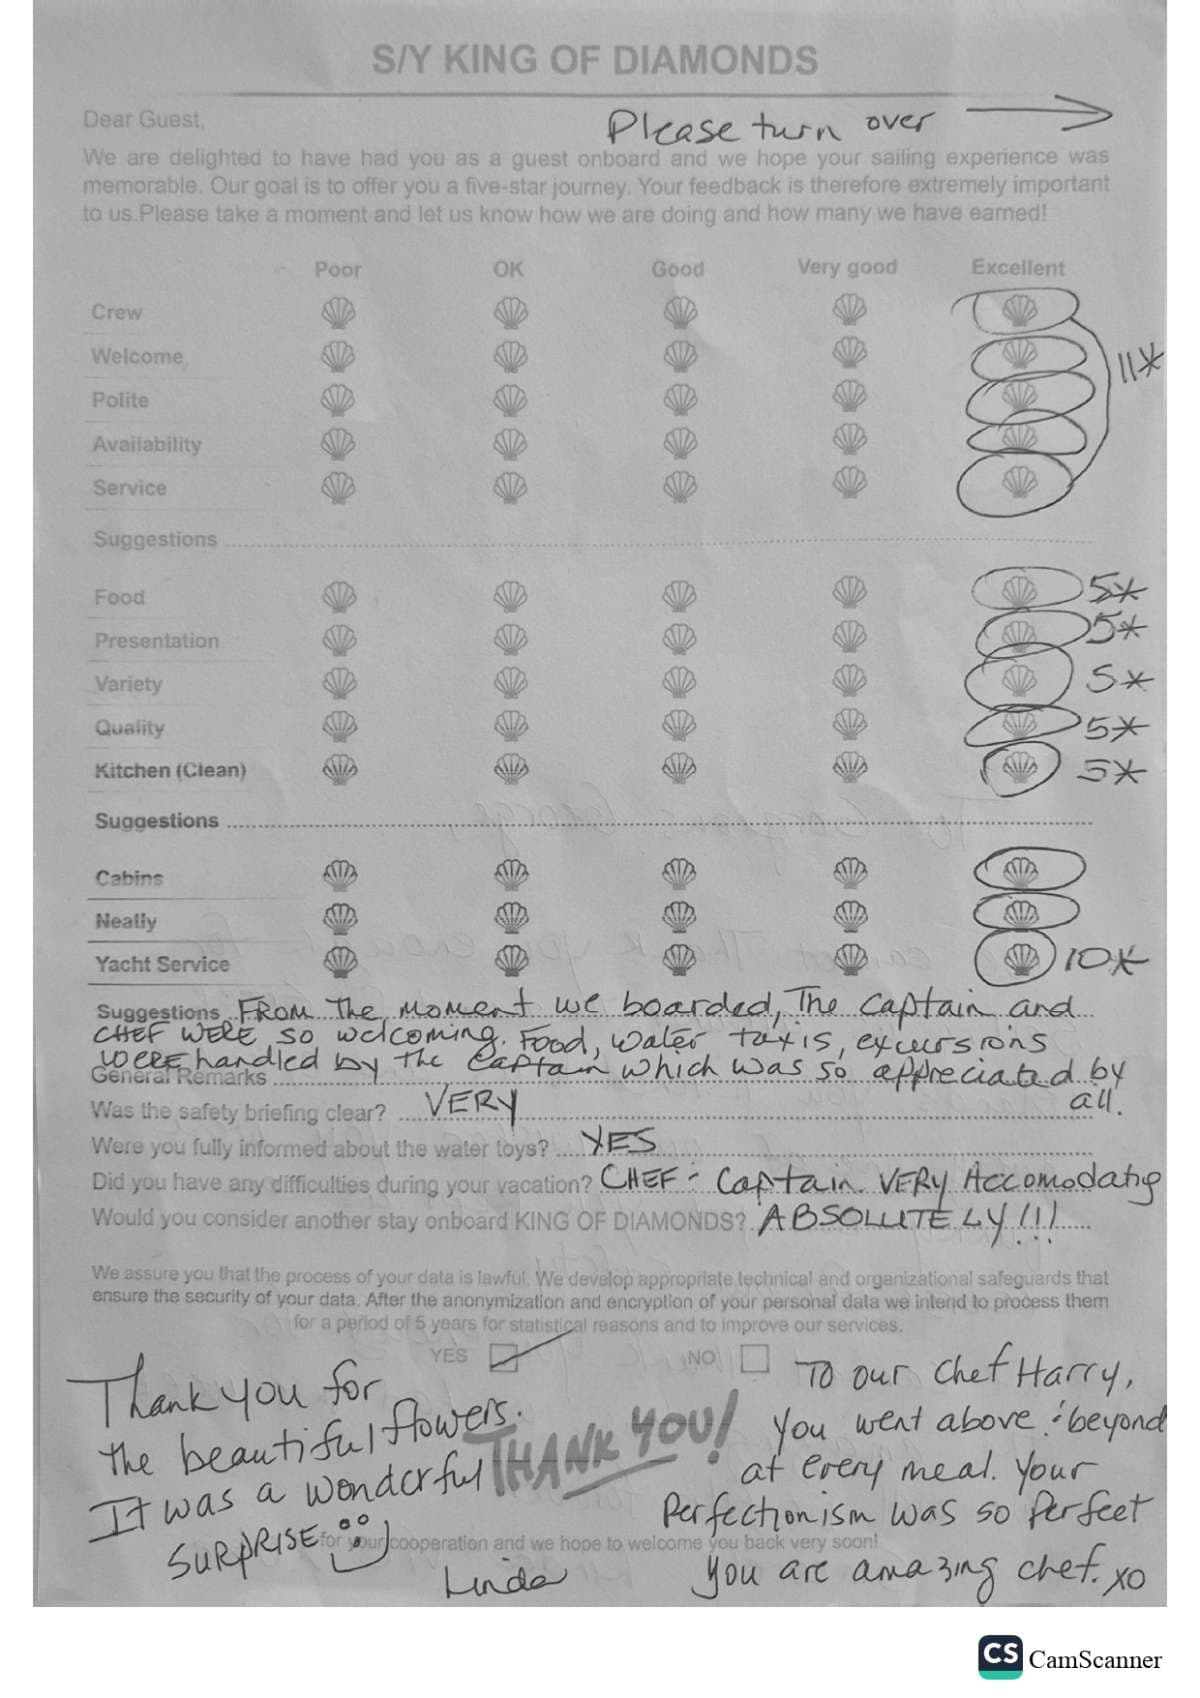 S/Y KING OF DIAMONDS
Dear Guest,
Please turn over
We are delighted to have had you as a guest onboard and we hope your sailing experience was
memorable. Our goal is to offer you a five-star journey. Your feedback is therefore extremely important
to us.Please take a moment and let us know how we are doing and how many we have earned!
Poor OK Good Very good Excellent
Crew
Welcome 11*
Polite
Availability
Service
Suggestions
Food 5*
Presentation 5*
Variety 5*
Quality 5*
Kitchen (Clean) 5*
Suggestions
Cabins
Neatly
Yacht Service 10*
Suggestions FROM The moment we boarded, The captain and
CHEF WERE so welcoming. Food, water taxis, excursions
WERE handled by the captain which was so appreciated by
General Remarks
all.
Was the safety briefing clear? VERY
Were you fully informed about the water toys? YES
Did you have any difficulties during your vacation? CHEF - Captain. VERY Accomodatig
Would you consider another stay onboard KING OF DIAMONDS? ABSOLUTELY!!!
We assure you that the process of your data is lawful. We develop appropriate technical and organizational safeguards that
ensure the security of your data. After the anonymization and encryption of your personal data we intend to process them
for a period of 5 years for statistical reasons and to improve our services.
YES NO
Thank you for
the beautiful flowers.
It was a wonderful
SURPRISE
THANK YOU!
To our chef Harry,
you went above & beyond
at every meal. Your
Perfectionism was so perfect
for your cooperation and we hope to welcome you back very soon!
you are amazing chef. xo
Linda
CS CamScanner